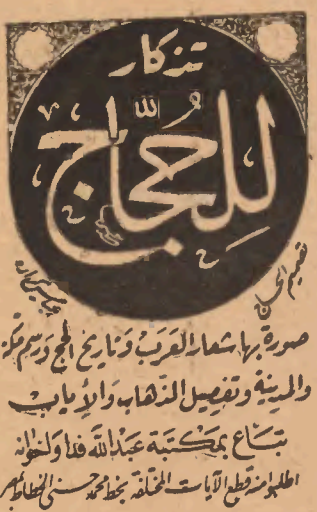 تذكار
للحجاج
الله
تقديم الحاج
صورة بها شعار العرب وتاريخ الحج ورسم مكة
والمدينة وتفصيل الذهاب والأياب
تباع بمكتبة عبد الله فدا ولخوانه
اطلبوا منه قطع الآيات المختلفة بخط محمد حسني الخطاط بمصر